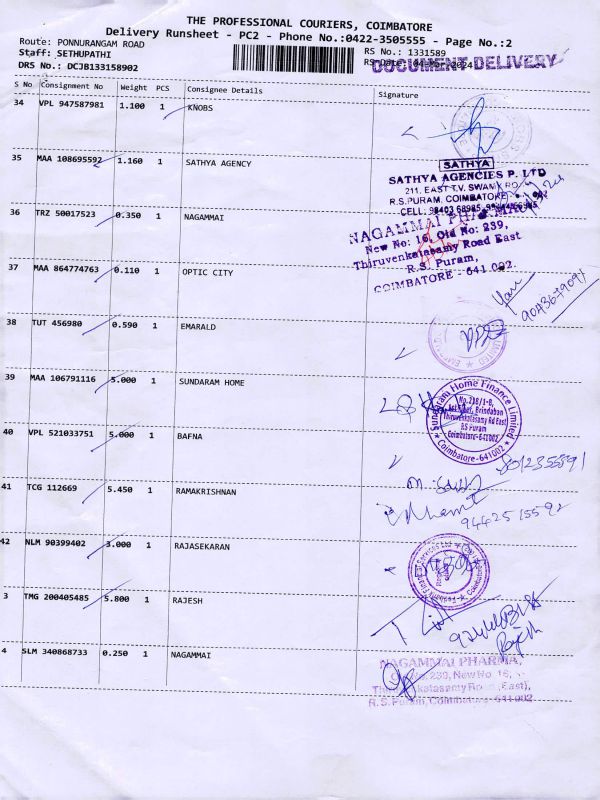 THE PROFESSIONAL COURIERS, COIMBATORE
Delivery Runsheet - PC2 - Phone No.:0422-3505555 - Page No.:2
Route: PONNURANGAM ROAD
Staff: SETHUPATHI
DRS No.: DCJB133158902
RS No.: 1331589
RS Date:
DOCUMENT DELIVERY
S No Consignment No Weight PCS Consignee Details Signature
34 VPL 947587981 1.100 1 KNOBS
35 MAA 108695592 1.160 1 SATHYA AGENCY
SATHYA
SATHYA AGENCIES P. LTD
211, EAST T.V. SWAMY RO
R.S.PURAM, COIMBATORE
CELL:
36 TRZ 50017523 0.350 1 NAGAMMAI
NAGAMMAI PHARMA
New No: 16, Old No: 239,
Thiruvenkatasamy Road East
R.S. Puram,
COIMBATORE - 641 002.
37 MAA 864774763 0.110 1 OPTIC CITY
9043679091
38 TUT 456980 0.590 1 EMARALD
39 MAA 106791116 5.000 1 SUNDARAM HOME
Sundaram Home Finance Limited
No.218/1-B,
Brindaban
Thiruvenkatasamy Rd East
RS Puram
Coimbatore-641002
* Coimbatore-641002 *
40 VPL 521033751 5.000 1 BAFNA
41 TCG 112669 5.450 1 RAMAKRISHNAN
9442515592
42 NLM 90399402 3.000 1 RAJASEKARAN
3 TMG 200405485 5.800 1 RAJESH
Rajesh
4 SLM 340868733 0.250 1 NAGAMMAI
NAGAMMAI PHARMA,
239, New No 16,
(East),
R.S. Puram, Coimbatore - 641 002